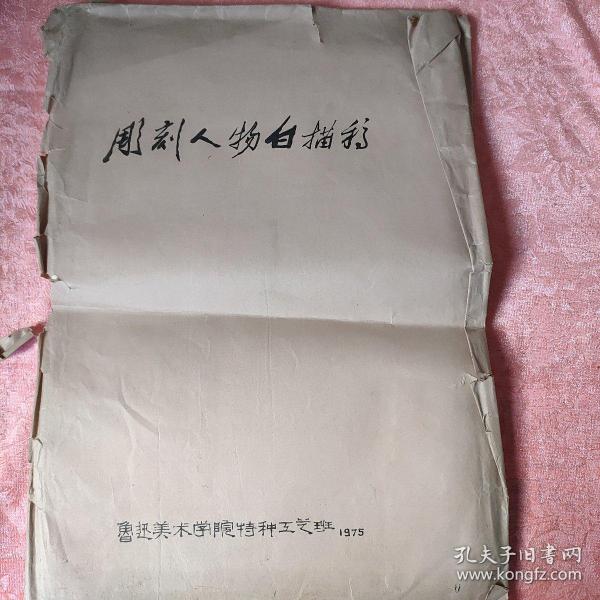 彫刻人物白描稿
鲁迅美术学院特种工艺班 1975
孔夫子旧书网
www.kongfz.com